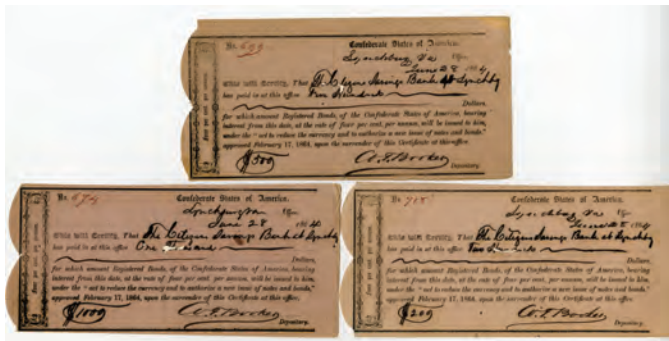 No. 699 Confederate States of America.
Lynchburg Va Office,
June 28 1864
This will Certify, That The Citizens Savings Bank at Lynchbg
has paid in at this office Five Hundred
Dollars,
for which amount Registered Bonds, of the Confederate States of America, bearing
interest from this date, at the rate of four per cent, per annum, will be issued to him,
under the "act to reduce the currency and to authorize a new issue of notes and bonds,"
approved February 17, 1864, upon the surrender of this Certificate at this office.
$500
Depositary.
Four per cent. per annum.
No. Confederate States of America.
Lynchburg Va Office,
June 28 1864
This will Certify, That The Citizens Savings Bank at Lynchbg
has paid in at this office One Thousand
Dollars,
for which amount Registered Bonds, of the Confederate States of America, bearing
interest from this date, at the rate of four per cent. per annum, will be issued to him,
under the "act to reduce the currency and to authorize a new issue of notes and bonds,"
approved February 17, 1864, upon the surrender of this Certificate at this office.
$1000
Depositary.
Four per cent. per annum.
No. Confederate States of America.
Lynchburg Va Office,
June 28 1864
This will Certify, That The Citizens Savings Bank at Lynchbg
has paid in at this office Two Hundred
Dollars,
for which amount Registered Bonds, of the Confederate States of America, bearing
interest from this date, at the rate of four per cent. per annum, will be issued to him,
under the "act to reduce the currency and to authorize a new issue of notes and bonds,"
approved February 17, 1864, upon the surrender of this Certificate at this office.
$200
Depositary.
Four per cent. per annum.